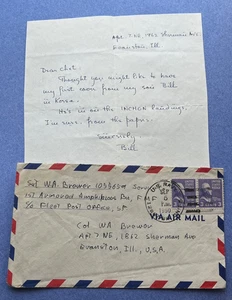 Apt. 7 NE, 1862 Sherman Ave
Evanston Ill
Dear Chet.
Thought you might like to have
my first cover from my son Bill
in Korea.
He's in on the INCHON landings.
I'm sure. from the papers.
Sincerely,
Bill
Col WA Brower
1st Armored Amphibious Bn, F
c/o Fleet Post Office, SF
U.S. NA
VIA AIR MAIL
Col WA Brower
Apt. 7 NE, 1862 Sherman Ave
Evanston, Ill., U.S.A.